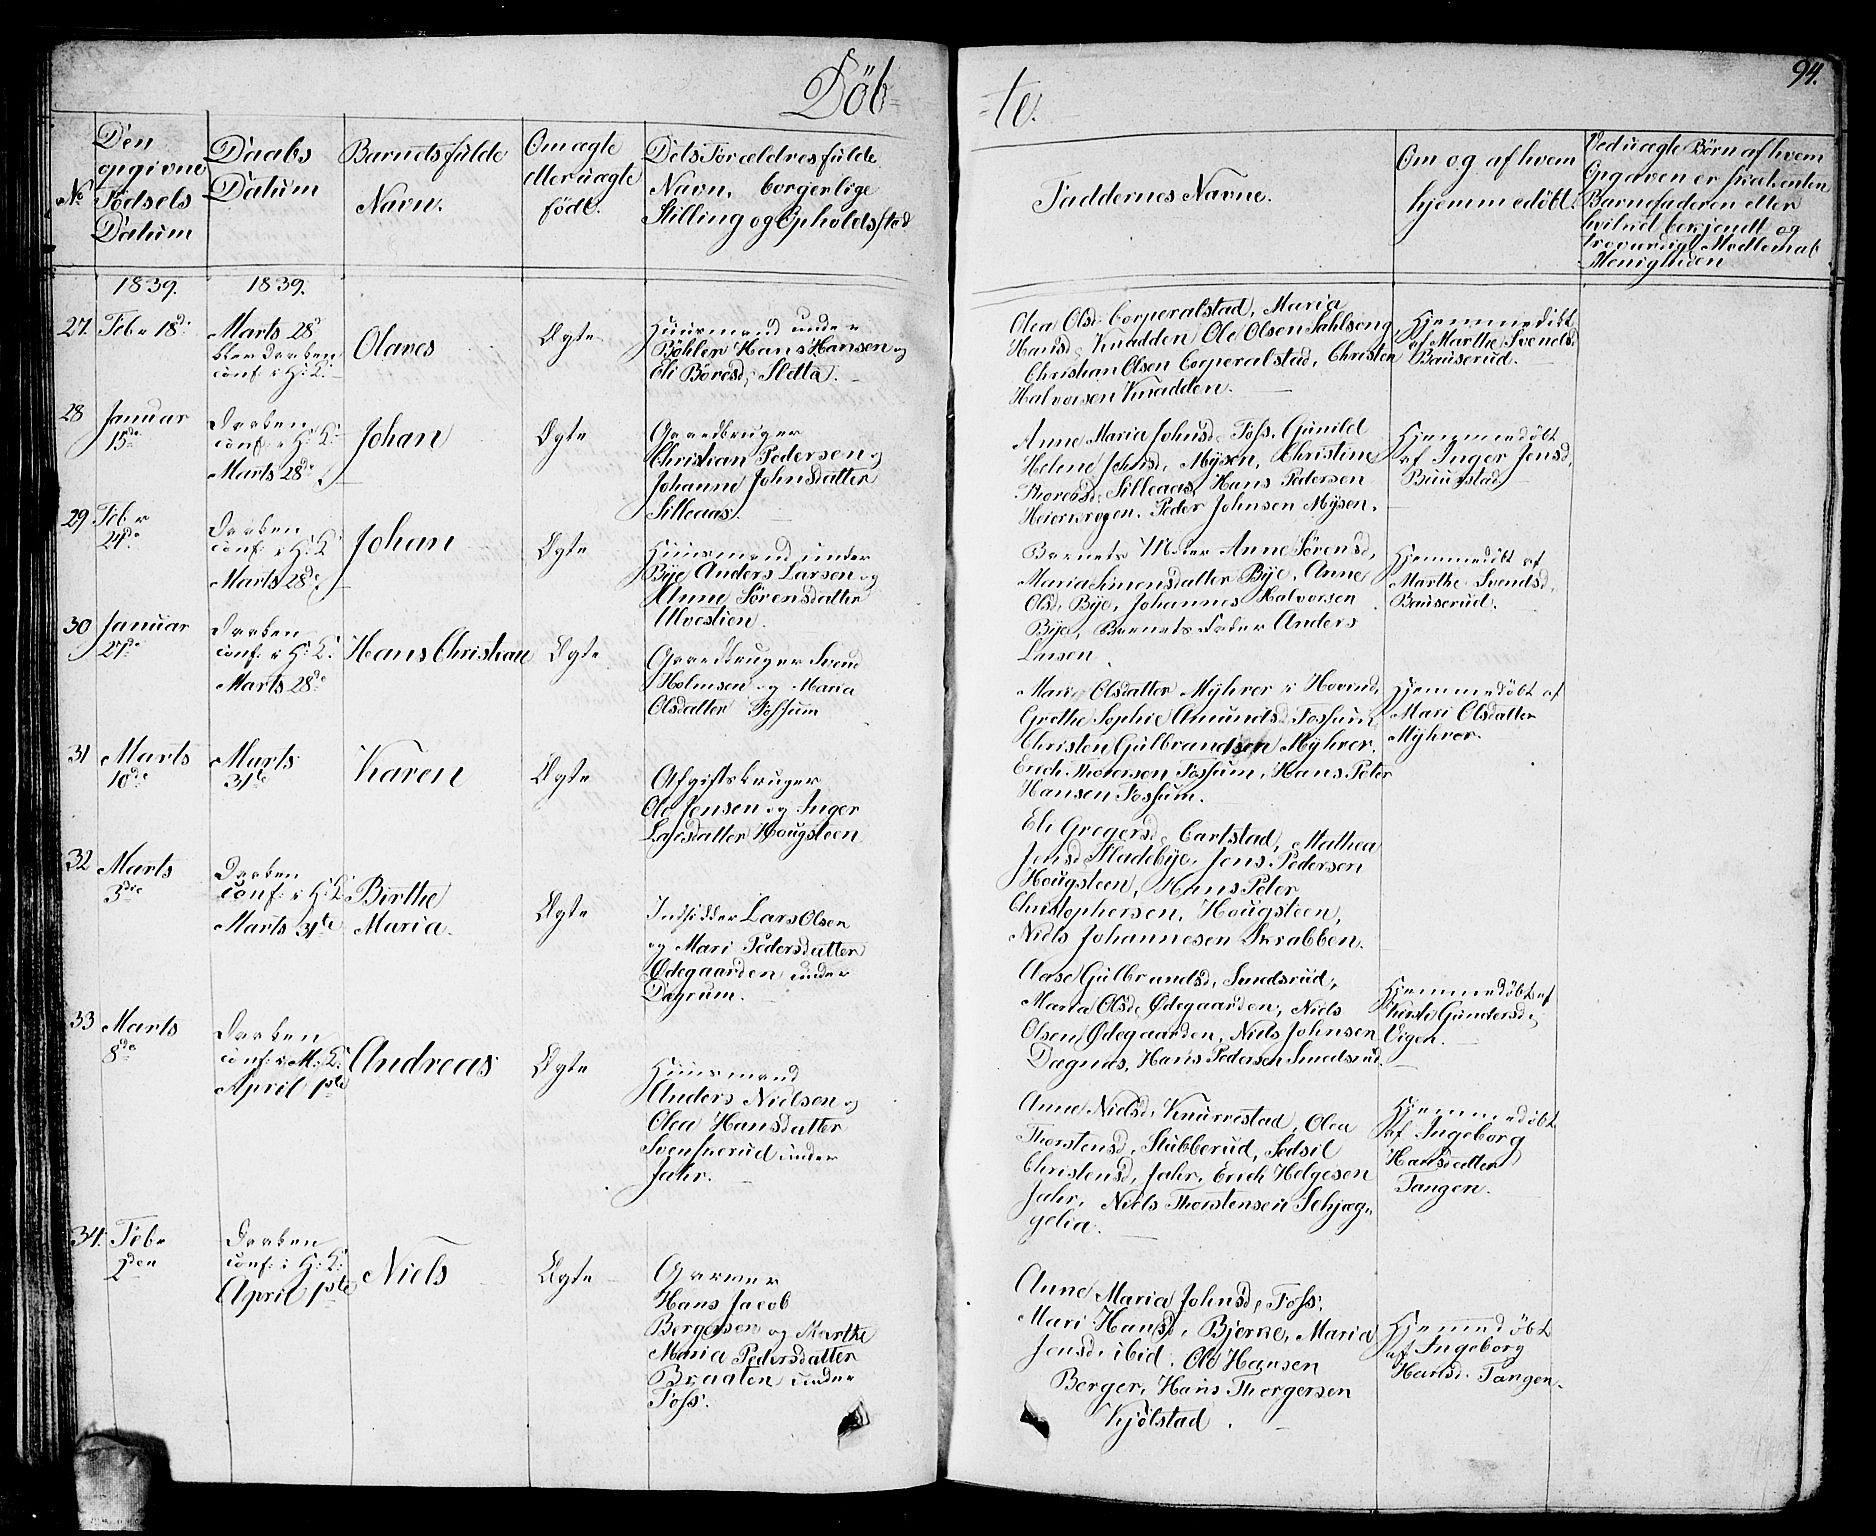 Döb-
-te.
94.
No
Den
opgivne
Födsels
Datum
Daabs
Datum
Barnets fulde
Navn.
Om ægte
eller uægte
født.
Dets Forældres fulde
Navn, borgerlige
Stilling og Opholdssted
Faddernes Navne.
Om og af hvem
hjemmedöbt.
Ved uægte Börn af hvem
Opgaven er
Barnefaderen eller
hvilket bekjendt og
troværdigt Medlem af
Menigheden
1839.
1839.
27. Feb. 18de
Marts 28de
blev Daaben
conf. i H: K:
Olaves
Ægte
Huusmand under
Böhler Hans Hansen og
Eli Böresd, Sletta.
Olea Olsd. Corperalstad, Maria
Hansd, Knadden, Ole Olsen Sahlsong,
Christian Olsen Corperalstad, Christen
Halvorsen Knadden.
Hjemmedöbt
af Marthe Svendsd.
Bauserud.
28
Januar
15de
Daaben
conf. i H: K:
Marts 28de
Johan
Ægte
Gaardbruger
Christian Pedersen og
Johanne Johnsdatter
Silleaas.
Anne Maria Johnsd, Foss, Gunild
Helene Johnsd, Mysen, Christine
Thoresd, Silleaas, Hans Pedersen
Peder Johnsen Mysen.
Hjemmedöbt
af Inger Jensd,
Buustad
29 Febr
24de
Daaben
conf. i H: K:
Marts 28de
Johan
Ægte
Huusmand under
Bye Anders Larsen og
Anne Sörensdatter
Ulvestien.
Barnets Moder Anne Sörensd,
Maria Simensdatter Bye, Anne
Olsd, Bye, Johannes Halvorsen
Bye, Barnets Fader Anders
Larsen
Hjemmedöbt af
Marthe Svendsd,
Bauserud.
30 Januar
27de
Daaben
conf. i H: K:
Marts 28de
Hans Christian
Ægte
Gaardbruger Svend
Holmsen og Maria
Olsdatter Fossum
Mari Olsdatter Myhrer i Hovind,
Grethe Sophie Amundsd, Fossum,
Christen Gulbrandsen Myhrer,
Erich Thoresen Fossum, Hans Peter
Hansen Fossum.
Hjemmedöbt af
Mari Olsdatter
Myhrer.
31 Marts
10de
Marts
31te
Karen
Ægte
Afgiftsbruger
Ole Jensen og Inger
Larsdatter Hougsteen
Eli Gregersd, Carlstad, Mathea
Jensd Fladebye, Jens Pedersen
Hougsteen, Hans Peter
Christophersen, Hougsteen,
Niels Johannesen Skrabben.
32 Marts
3die
Daaben
conf. i H: K:
Marts 31te
Birthe
Maria.
Ægte
Indsidder Lars Olsen
og Mari Pedersdatter
Ødegaarden under
Dagrum.
Aase Gulbrandsd, Smedsrud,
Maria Olsd, Ødegaarden, Niels
Olsen Ødegaarden, Niels Johnsen
Dægnæs, Hans Pedersen Smedsrud.
Hjemmedöbt af
Kirsti Gundersd,
Vigen.
33 Marts
8de
Daaben
conf. i M: K:
April 1ste
Andreas
Ægte
Huusmand
Anders Nielsen og
Olea Hansdatter
Svenskerud under
Jahr.
Anne Nielsd, Knurrestad, Olea
Thorstensd, Stubberud, Sedsil
Christensd, Jahr, Erich Helgesen
Jahr, Niels Thorstensen Schjæg-
gelia.
Hjemmedöbt
af Ingeborg
Hansdatter
Tangen.
34. Feb.
2den
Daaben
conf. i H: K:
April 1ste
Niels
Ægte
Garver
Hans Jacob
Bergersen og Marthe
Maria Pedersdatter
Braaten under
Foss.
Anne Maria Johnsd, Foss,
Mari Hansd, Bjerke, Maria
Jensd, ibid, Ole Hansen
Berger, Hans Thorgersen
Kjölstad.
Hjemmedöbt
af Ingeborg
Hansd. Tangen.